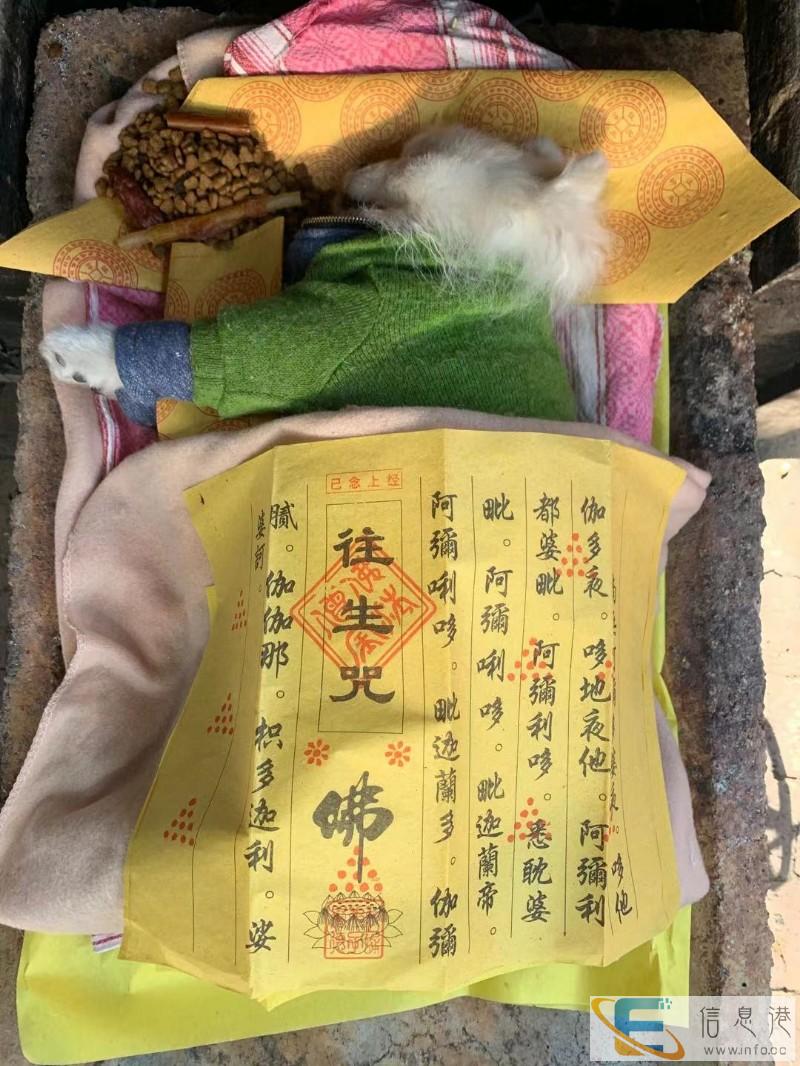 婆夜。哆他
伽多夜。哆地夜他。阿彌利
都婆毗。阿彌利哆。悉耽婆
毗。阿彌唎哆。毗迦蘭帝。
阿彌唎哆。毗迦蘭多。伽彌
已念上经
往生咒
佛
膩。伽伽那。枳多迦利。娑
婆訶。
信息港
www.info.cc